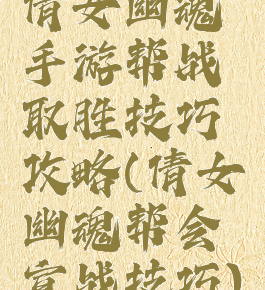 倩女幽魂
手游帮战
取胜技巧
攻略(倩女
幽魂帮会
宣战技巧)